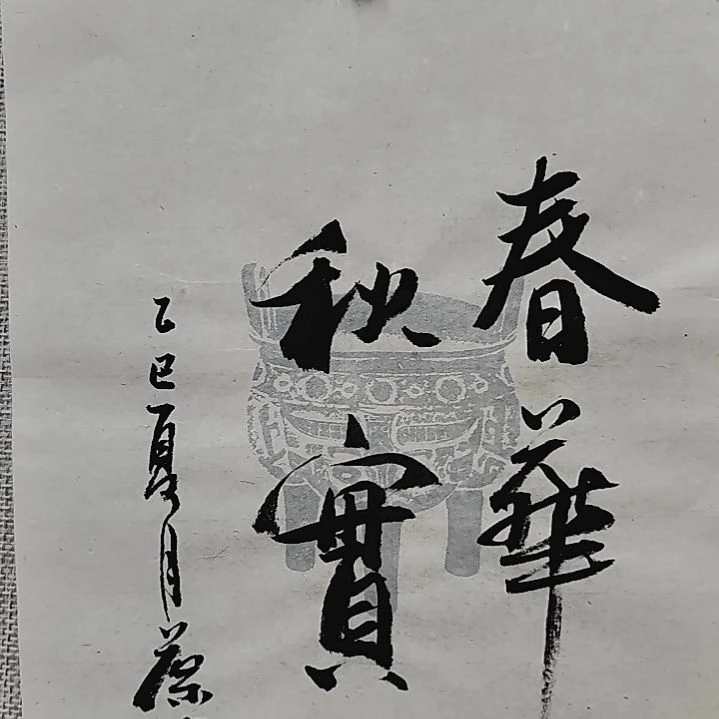 春華
秋實
乙巳夏月